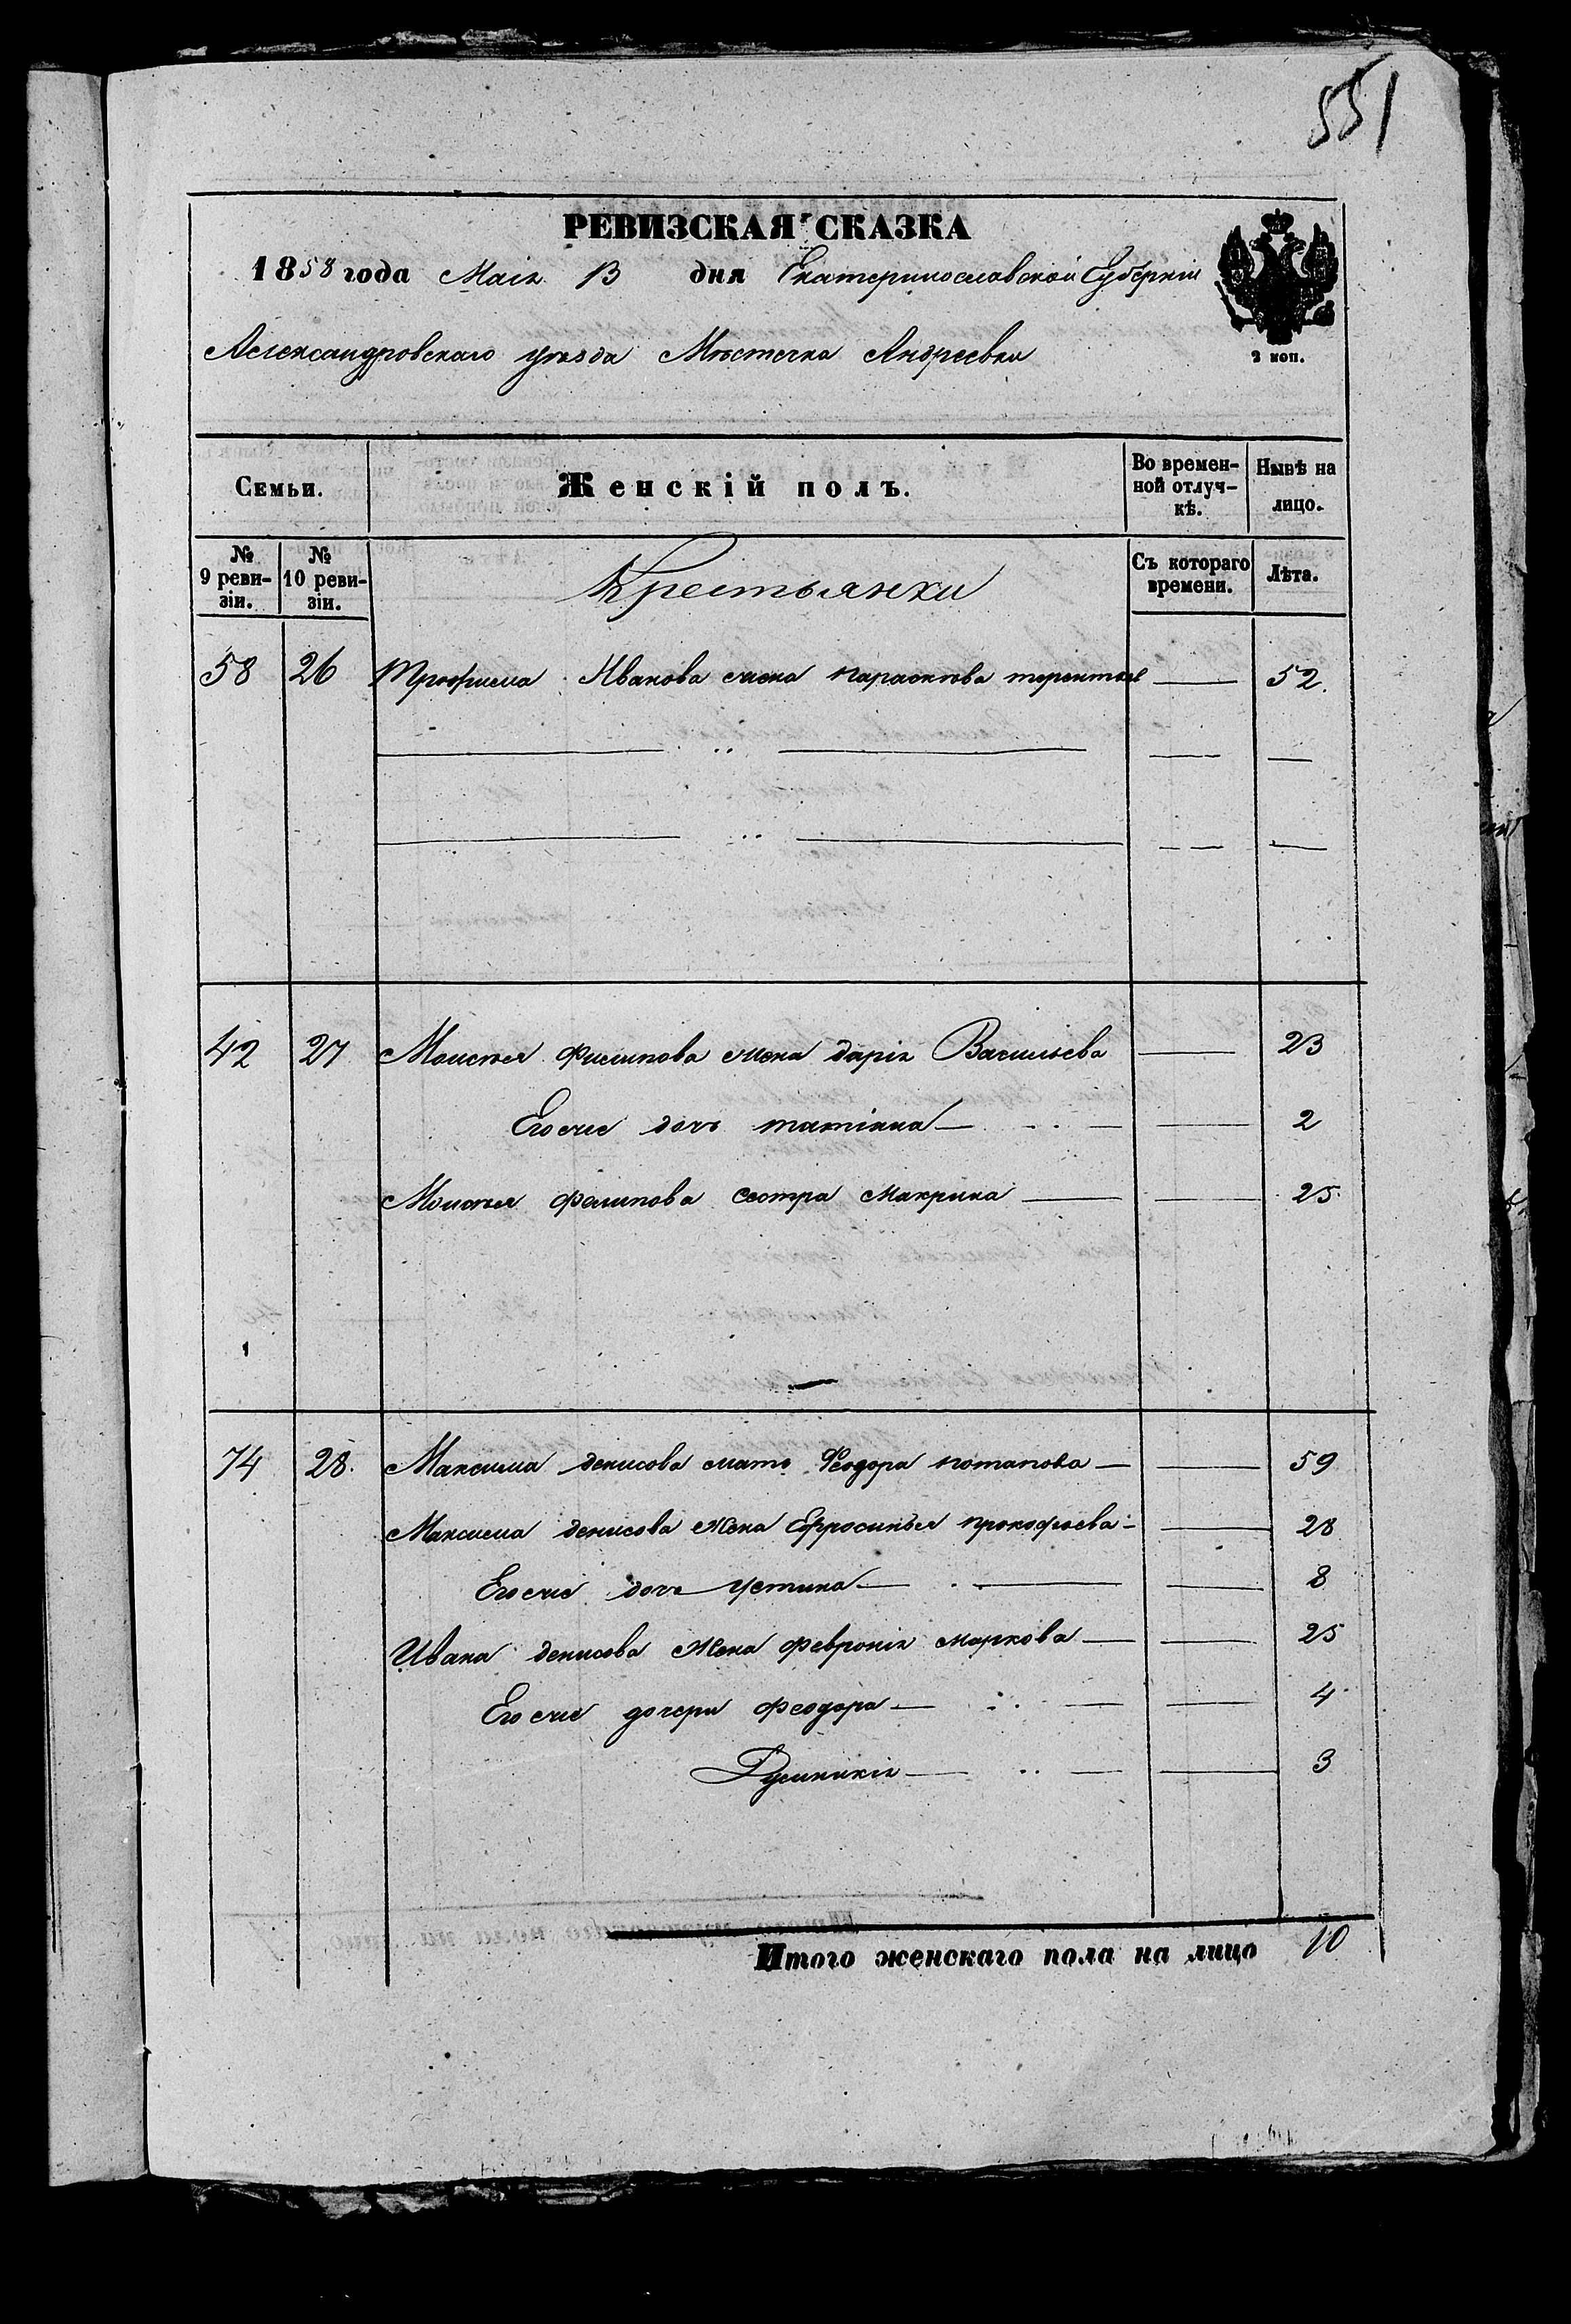 551
РЕВИЗСКАЯ СКАЗКА
1858 года Маія 13 дня Екатеринославской Губерніи
Александровскаго уѣзда Мѣстечка Андреевки
2 коп.
Семьи. Женскій полъ. Во времен- Нынѣ на
ной отлуч- лицо.
кѣ.
№ № Крестьянки Съ котораго Лѣта.
9 реви- 10 реви- времени.
зіи. зіи.
58 26 Трофима Иванова жена параскова терентьев 52.
42 27 Моисѣя Филипова жена дарія Васильева 23
Его же дочь татіяна 2
Моисѣя филипова сестра макрина 25.
74 28. Максима денисова мать Феодора потапова 59
Максима денисова жена Ефросинья прокофьева 28
Его же дочь устина 8
Ивана денисова жена февронія маркова 25
Его же дочери феодора 4
3
Итого женскаго пола на лицо 10